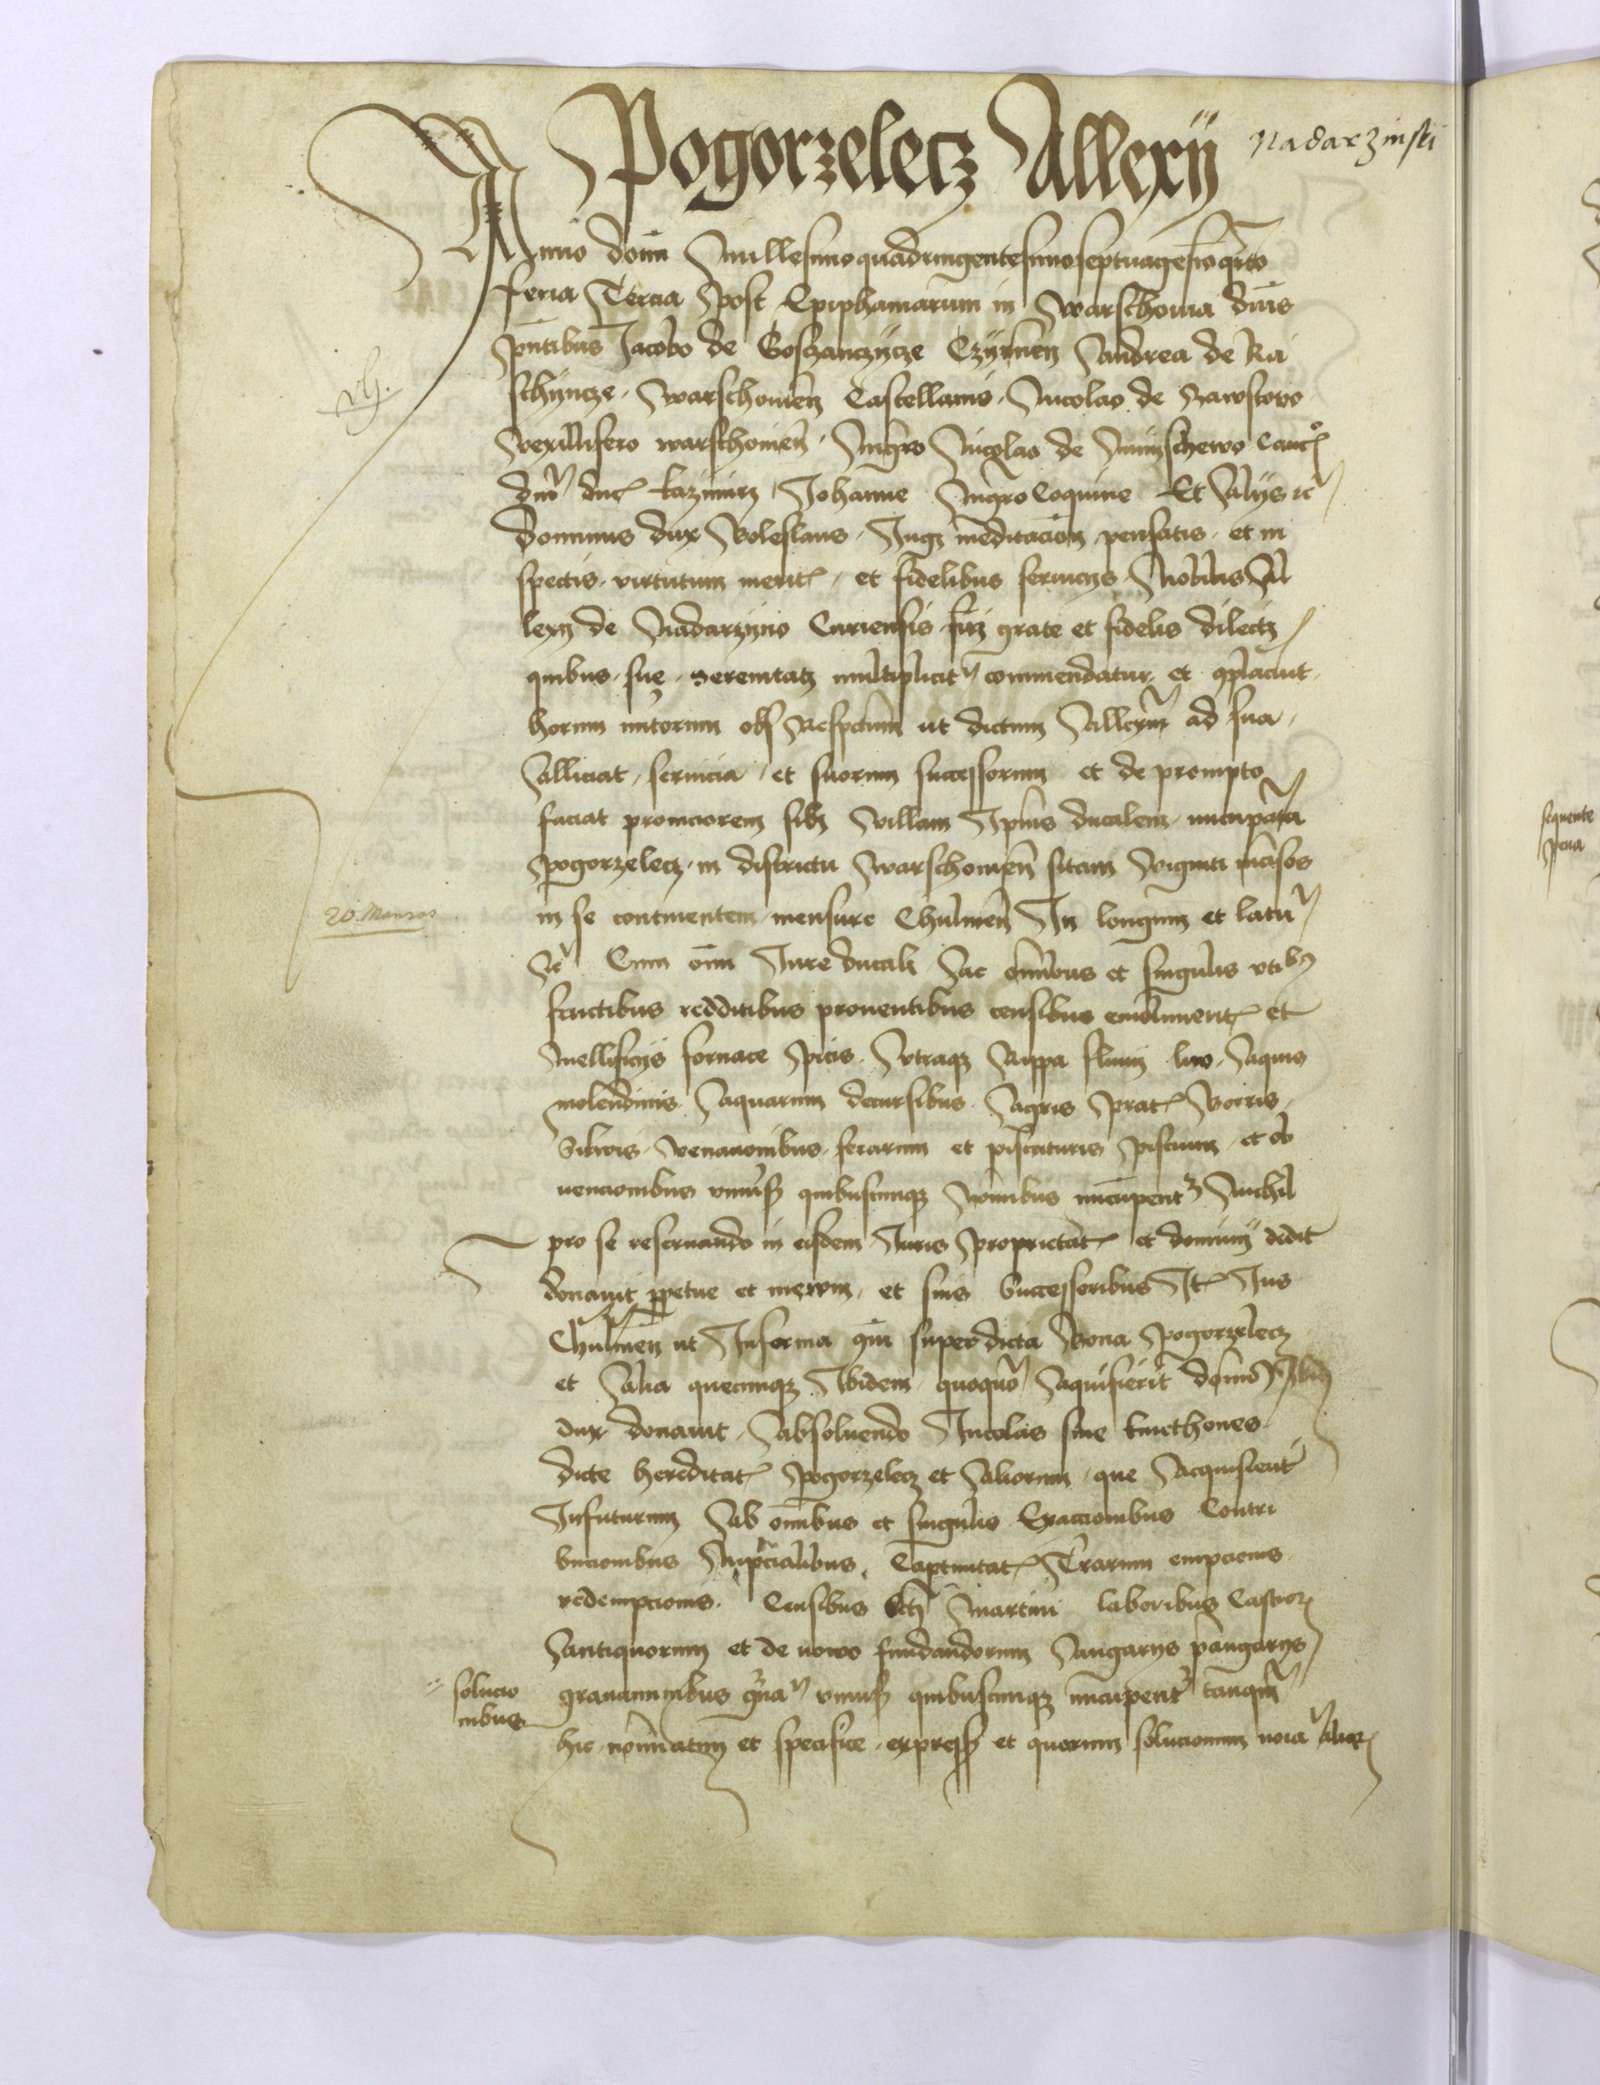 Pogorzelecz Allexij Nadarzinski
Anno domi Millesimoquadringentesimoseptuagesimo qrto
feria Tercia post Epiphaniarum in Warschouia dnis
pntibus Jacobo de Goschanczycze Czyrnen Andrea de Ra
schyncze Warschouien Castellanis Nicolao de
Vexillifero warschouien Mgro Nicolao de Mnischewo Canc
dni duc kazimiri Johanne Mgro Coquine Et Alijs
Dominus dux Boleslaus Jugi meditacion pensatis et in
spectis virtutum merit et fidelibus seruicijs Nobilis Al
lexij de Nadarzyno Curiensis sui grate et fidelis dilecti
quibus sue serenitati multiplicitr commendatur et complacuit
horum intorum obs Respectum ut dictum Allexium ad sua
Alliciat seruicia et suorum successorum et de prompto
faciat promciorem sibi Villam Ipius ducalem nucupatam
Pogorzelecz in districtu Warschouien sitam Viginti mansos
in se continentem mensure Chulmen In longum et latum
Cum omni Jure ducali Ac omnibus et singulis vtibus
fructibus redditibus prouentibus censibus emolument et
Mellificijs fornace picis Vtraque Rippa fluuij Aquis
molendinis Aquarum decursibus Agris Prat Borris
Siluis venacionibus ferarum et piscaturis piscium et ob
uencionibus vniuersis quibuscunque Nominibus nucupent Nichil
pro se reseruando in eisdem Juris Proprietat et dominij dedit
donauit perpetue et in euum et suis Successoribus It Jus
Chulmen ut In forma qm super dicta Bona Pogorzelecz
et Alia quecunque Ibidem quoquo Aquisierit domino
dux donauit Absoluendo Incolas siue kmethones
dicte hereditat Pogorzelecz et Aliorum que Acquisierit
In futurum Ab omnibus et singulis Exaccionibus Contri
bucionibus Nupcialibus Captiuitat Terarum empcionis
redempcionis Censibus Scti Martini laboribus Castror
Antiquorum et de nowo fundandorum Angarijs pangarijs
solucio
nibus
grauaminibus vniuersis quibuscunque nucupent tanqm
hic nominatim et specifice expressis et quorum solucionum noia
20. Mansos
sequente